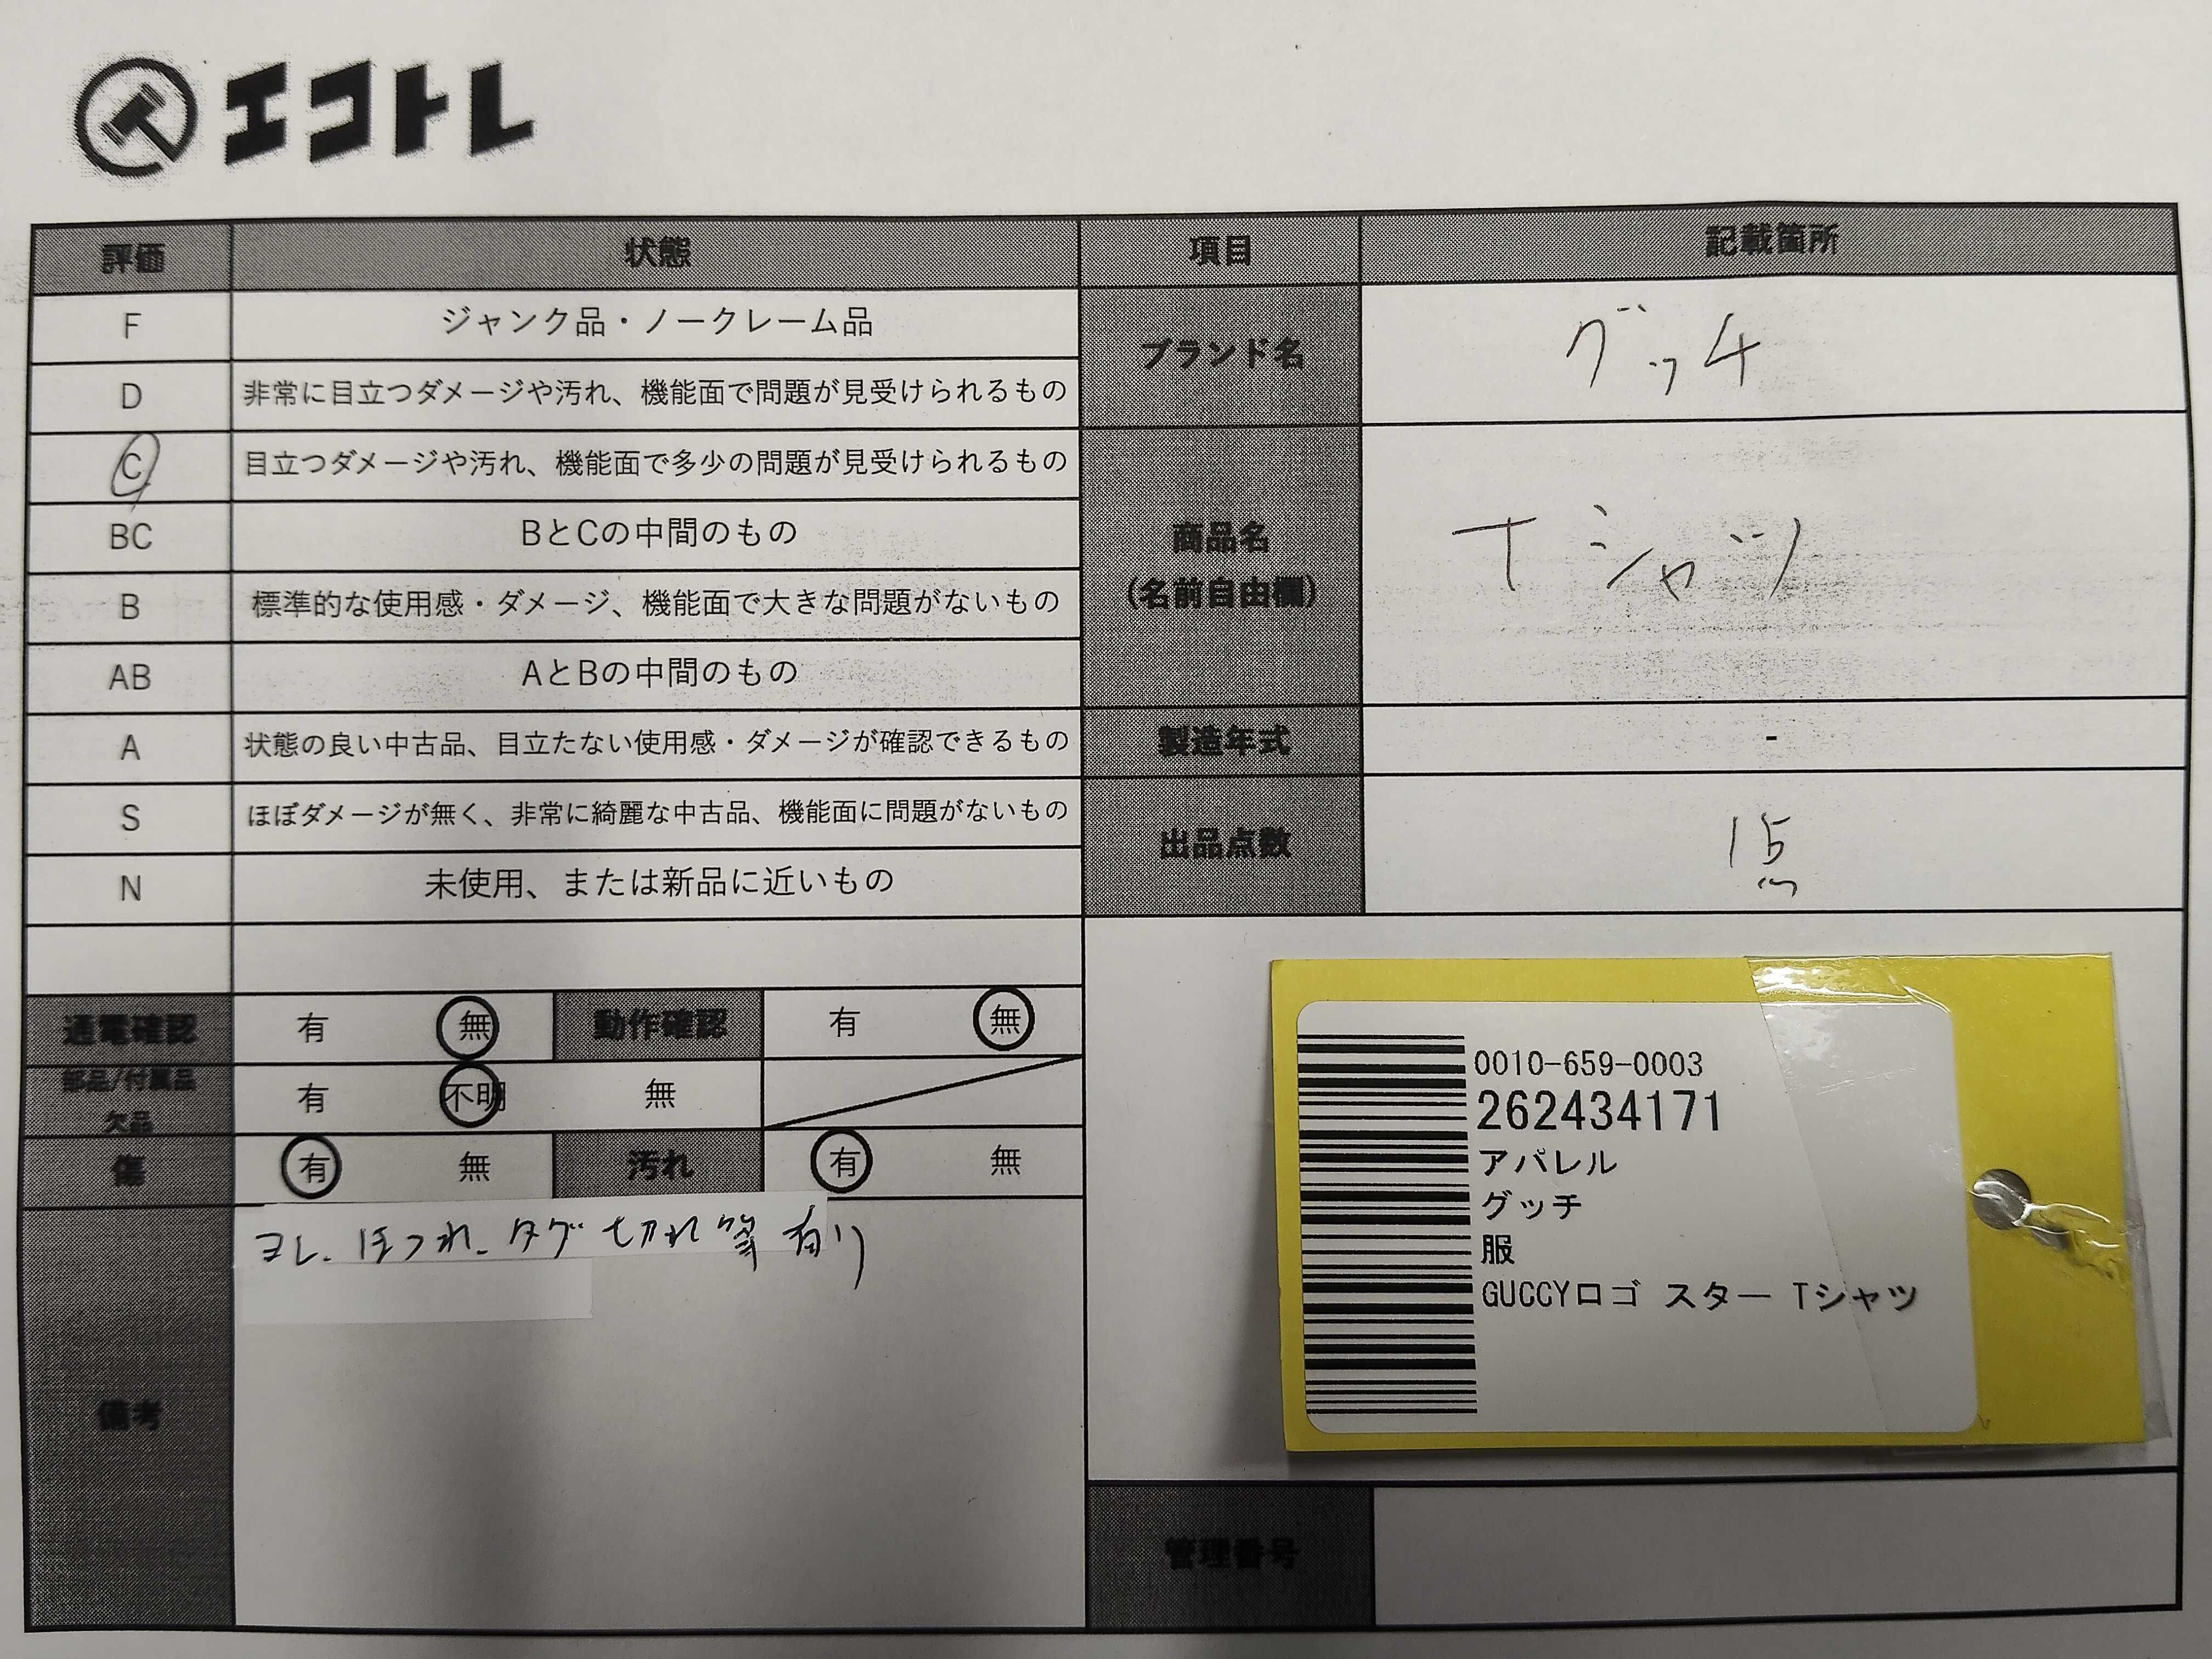 エコトレ
評価 状態 項目 記載箇所
F ジャンク品・ノークレーム品
D 非常に目立つダメージや汚れ、機能面で問題が見受けられるもの
C 目立つダメージや汚れ、機能面で多少の問題が見受けられるもの
BC BとCの中間のもの
B 標準的な使用感・ダメージ、機能面で大きな問題がないもの
AB AとBの中間のもの
A 状態の良い中古品、目立たない使用感・ダメージが確認できるもの
S ほぼダメージが無く、非常に綺麗な中古品、機能面に問題がないもの
N 未使用、または新品に近いもの
ブランド名 グッチ
商品名
(名前自由欄)
Tシャツ
製造年式 -
出品点数 1点
通電確認 有 無 動作確認 有 無
部品/付属品
欠品
有 不明 無
傷 有 無 汚れ 有 無
備考
ヨレ、ほつれ、タグ切れ等有り
0010-659-0003
262434171
アパレル
グッチ
服
GUCCYロゴ スター Tシャツ
管理番号